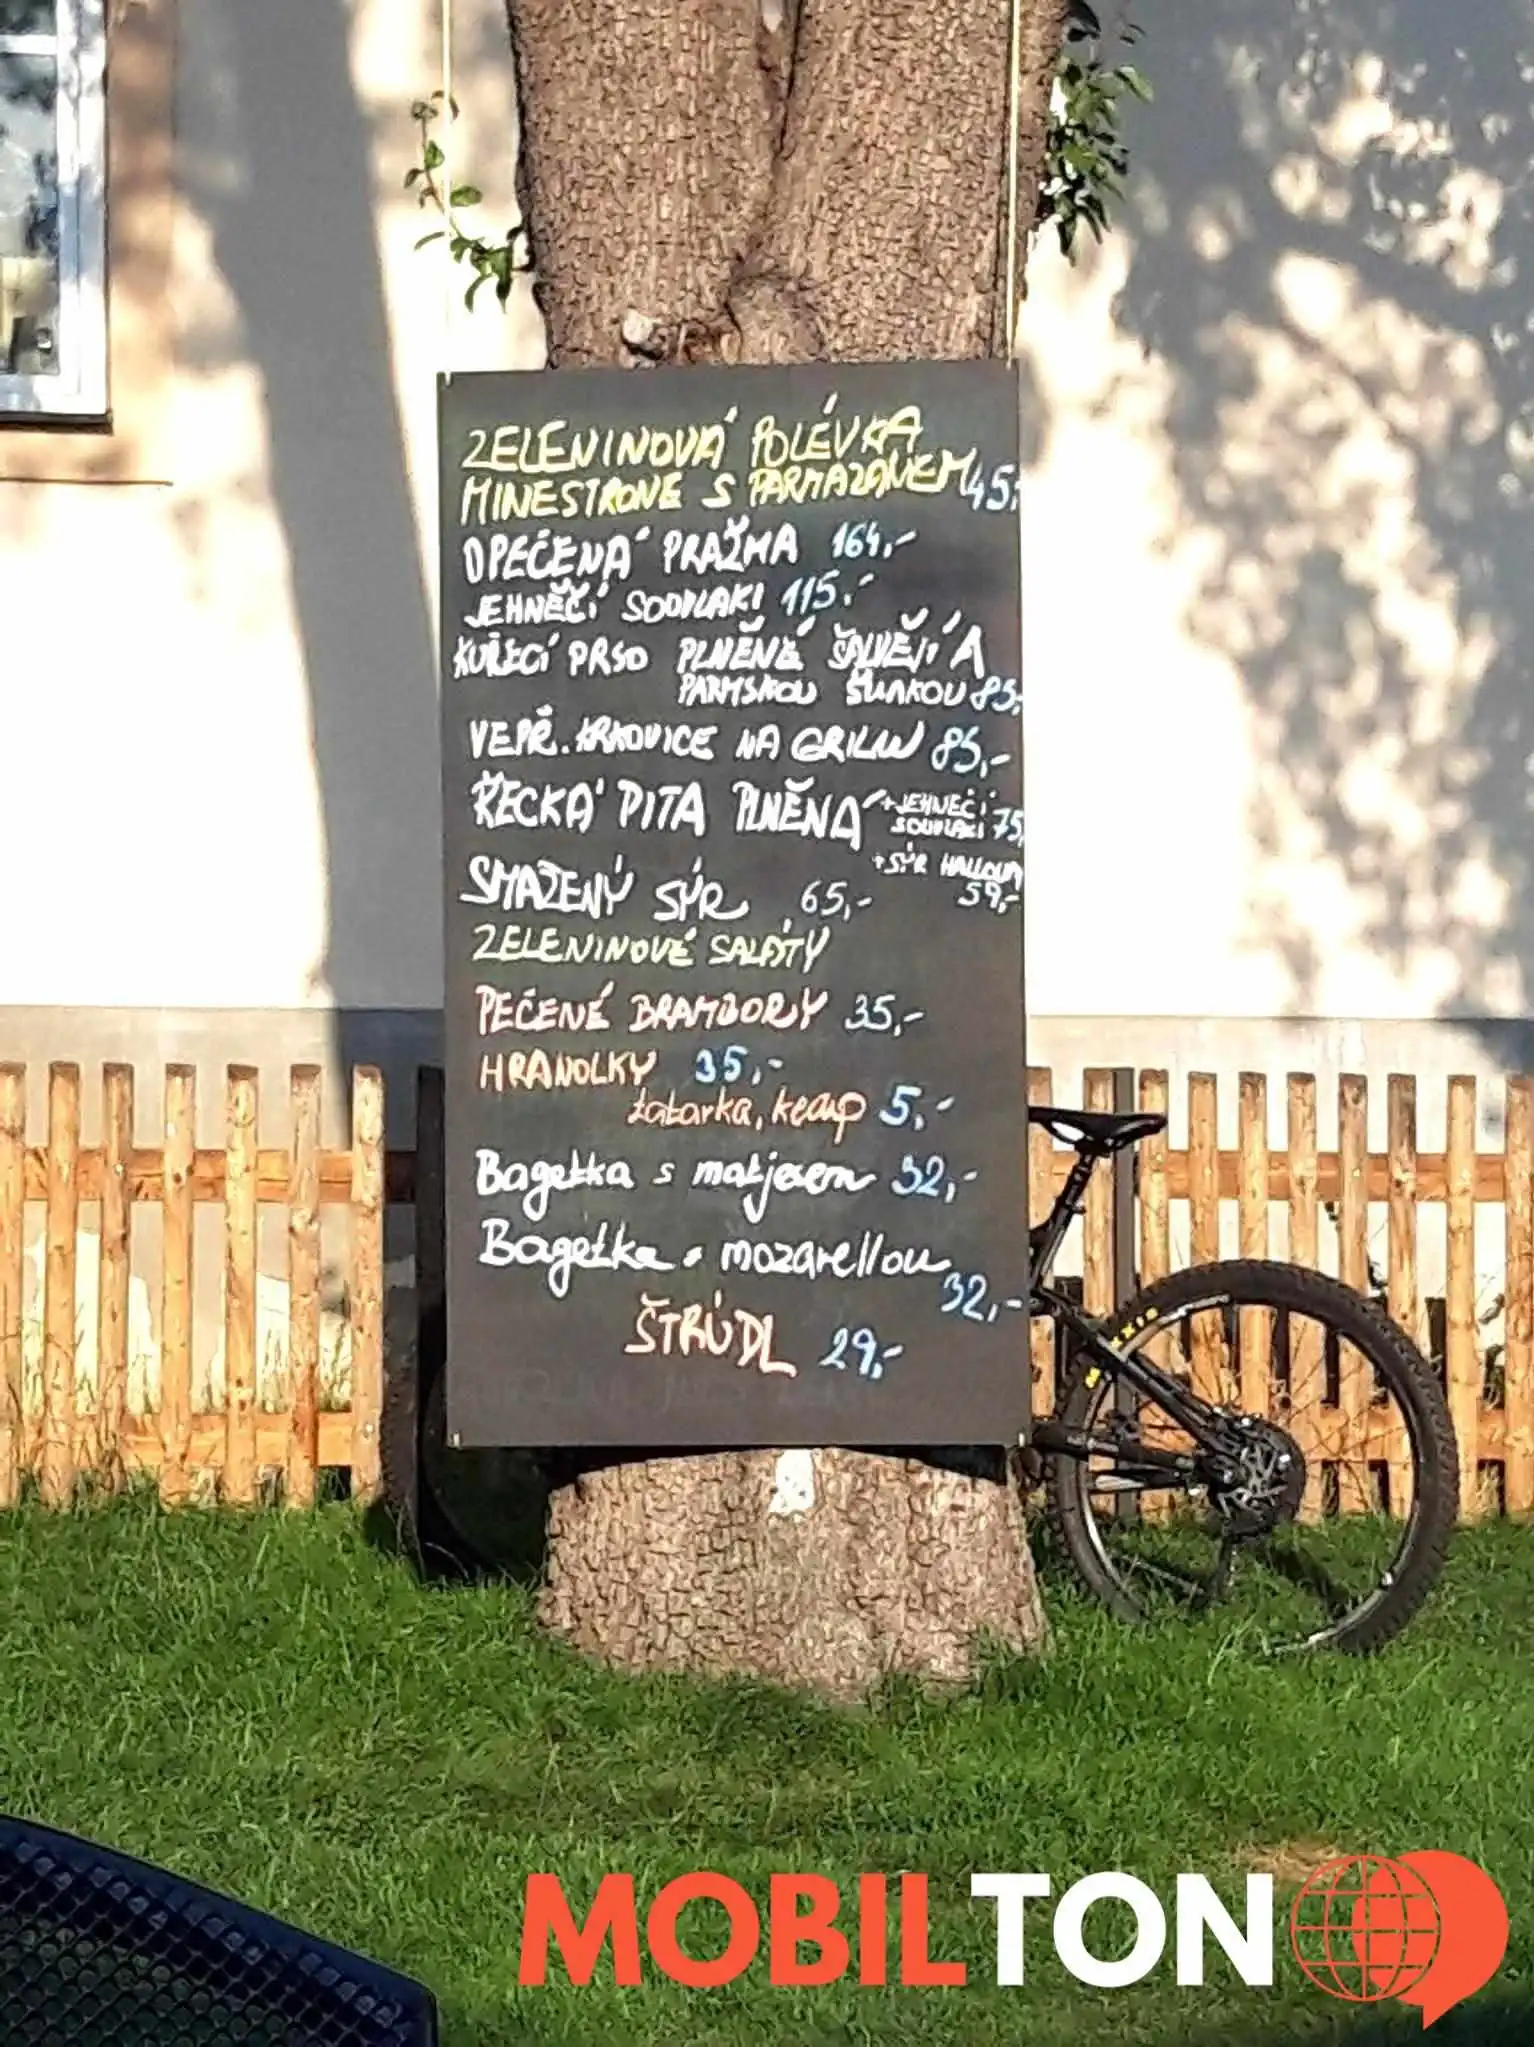 ZELENINOVÁ POLÉVKA
MINESTRONE S PARMAZANEM 45,-
OPEČENÁ PRAŽMA 164,-
JEHNĚČÍ SOUVLAKI 115,-
KUŘECÍ PRSO PLNĚNÉ ŠALVĚJÍ A
PARMSKOU ŠUNKOU 85,-
VEPŘ. KRKOVICE NA GRILU 85,-
ŘECKÁ PITA PLNĚNÁ + JEHNĚČÍ
SOUVLAKI 75,
+ SÝR HALLOUM
59,-
SMAŽENÝ SÝR 65,-
ZELENINOVÉ SALÁTY
PEČENÉ BRAMBORY 35,-
HRANOLKY 35,-
tatarka, kečup 5,-
Bagetka s matjesem 32,-
Bagetka s mozarellou
32,-
ŠTRÚDL 29,-
MOBILTON